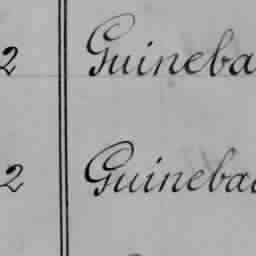 2 Guineba
2 Guineba